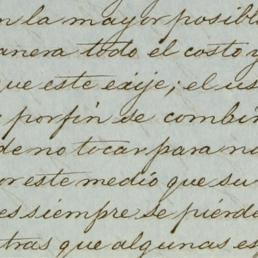 n la mayor posibl
anera todo el costo y
que este exije; el us
porfin se combin
de no tocar para na
or este medio que su
es siempre se piérde
tras que algunas es